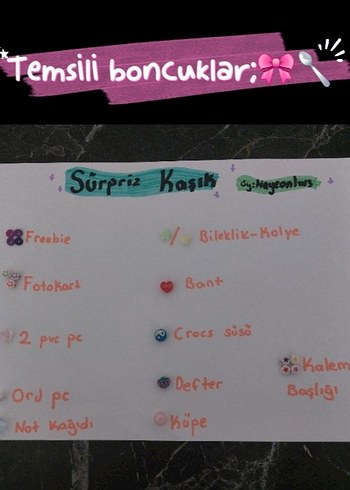 Temsili boncuklar;🎀🥄
Sürpriz Kaşık
Freebie
Fotokart
2 pvc pc
Ord pc
Not Kağıdı
Bileklik-Kolye
Bant
Crocs süsü
Defter
Küpe
Kalem
Başlığı